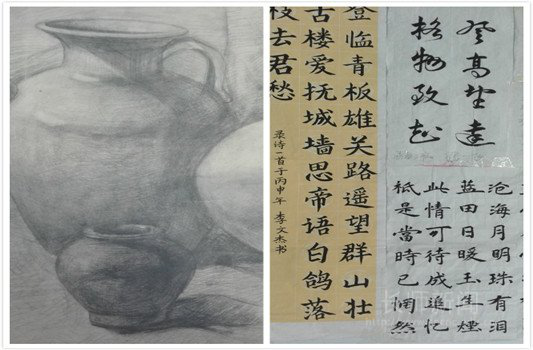 登临青板雄关路遥望群山壮
古楼爱抚城墙思帝语白鸽落
枝去君愁
录诗一首于丙申年 李文杰书
登高望遠
格物致
沧海月明珠有泪
蓝田日暖玉生煙
此情可待成追忆
祗是當時已惘然